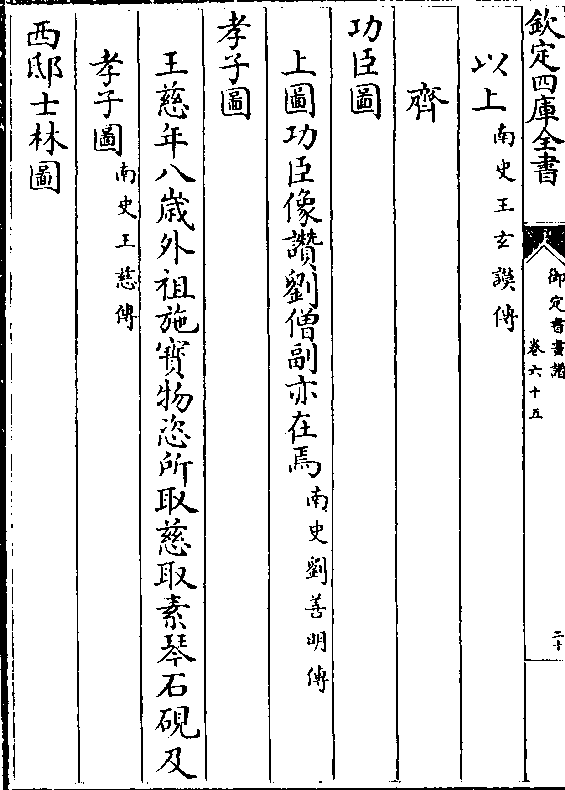 欽定四庫全書
御定書畫譜
卷六十五
二十
以上南史王玄謨傳
齊
功臣圖
上圖功臣像讚劉僧副亦在焉南史劉善明傳
孝子圖
王慈年八歲外祖施寶物恣所取慈取素琴石硯及
孝子圖南史王慈傳
西邸士林圖